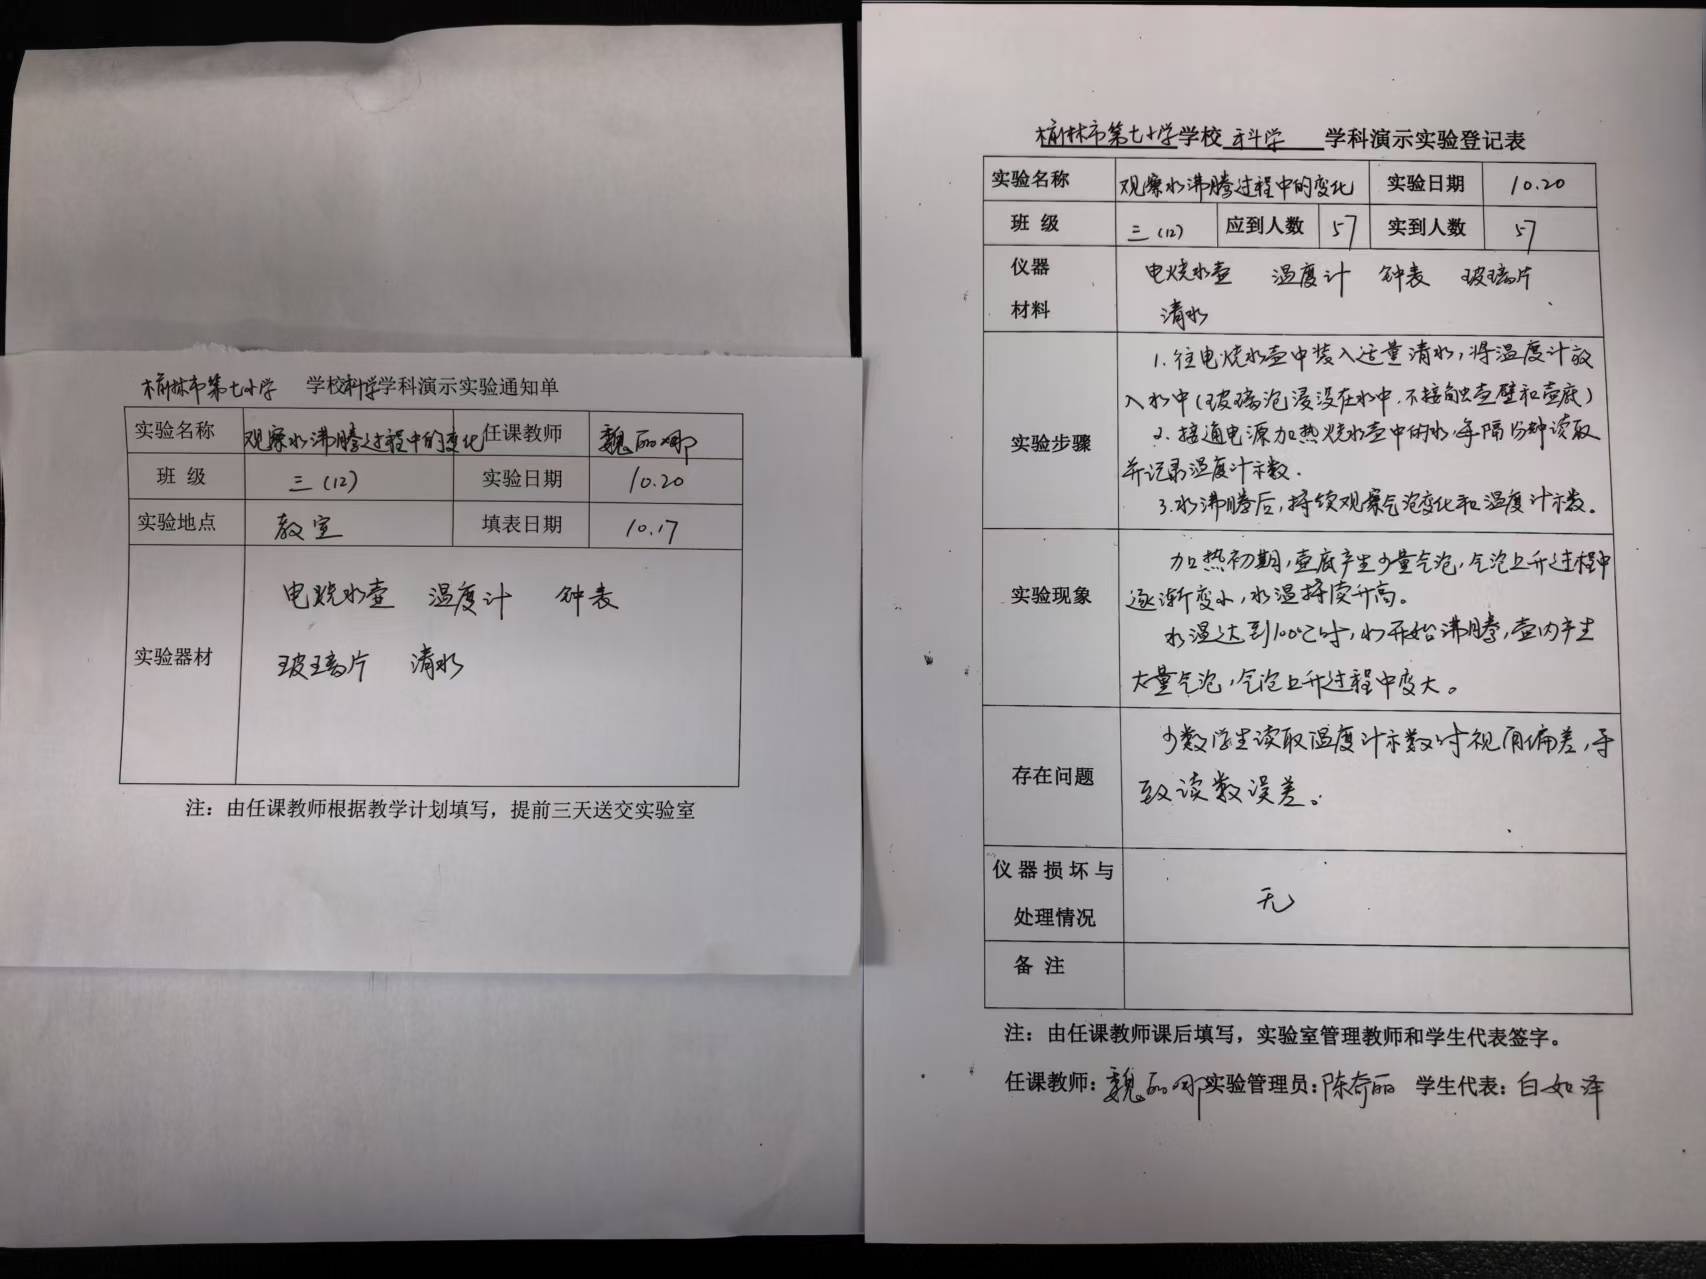 榆林市第七小学 学校科学学科演示实验通知单
实验名称 观察水沸腾过程中的变化 任课教师 魏丽娜
班 级 三(12) 实验日期 10.20
实验地点 教室 填表日期 10.17
实验器材
电烧水壶 温度计 钟表
玻璃片 清水
注：由任课教师根据教学计划填写，提前三天送交实验室
榆林市第七小学学校 科学 学科演示实验登记表
实验名称 观察水沸腾过程中的变化 实验日期 10.20
班 级 三(12) 应到人数 57 实到人数 57
仪器
材料
电烧水壶 温度计 钟表 玻璃片
清水
实验步骤
1.往电烧水壶中装入适量清水，将温度计放
入水中(玻璃泡浸没在水中.不接触壶壁和壶底)
2.接通电源加热烧水壶中的水，每隔 分钟读取
并记录温度计示数.
3.水沸腾后，持续观察气泡变化和温度计示数。
实验现象
加热初期，壶底产生少量气泡，气泡上升过程中
逐渐变小，水温持续升高。
水温达到100℃时，水开始沸腾，壶内产生
大量气泡，气泡上升过程中变大。
存在问题
少数学生读取温度计示数时视角偏差，导
致读数误差。
仪器损坏与
处理情况
无
备 注
注：由任课教师课后填写，实验室管理教师和学生代表签字。
任课教师：魏丽娜 实验管理员：陈奇丽 学生代表：白如泽